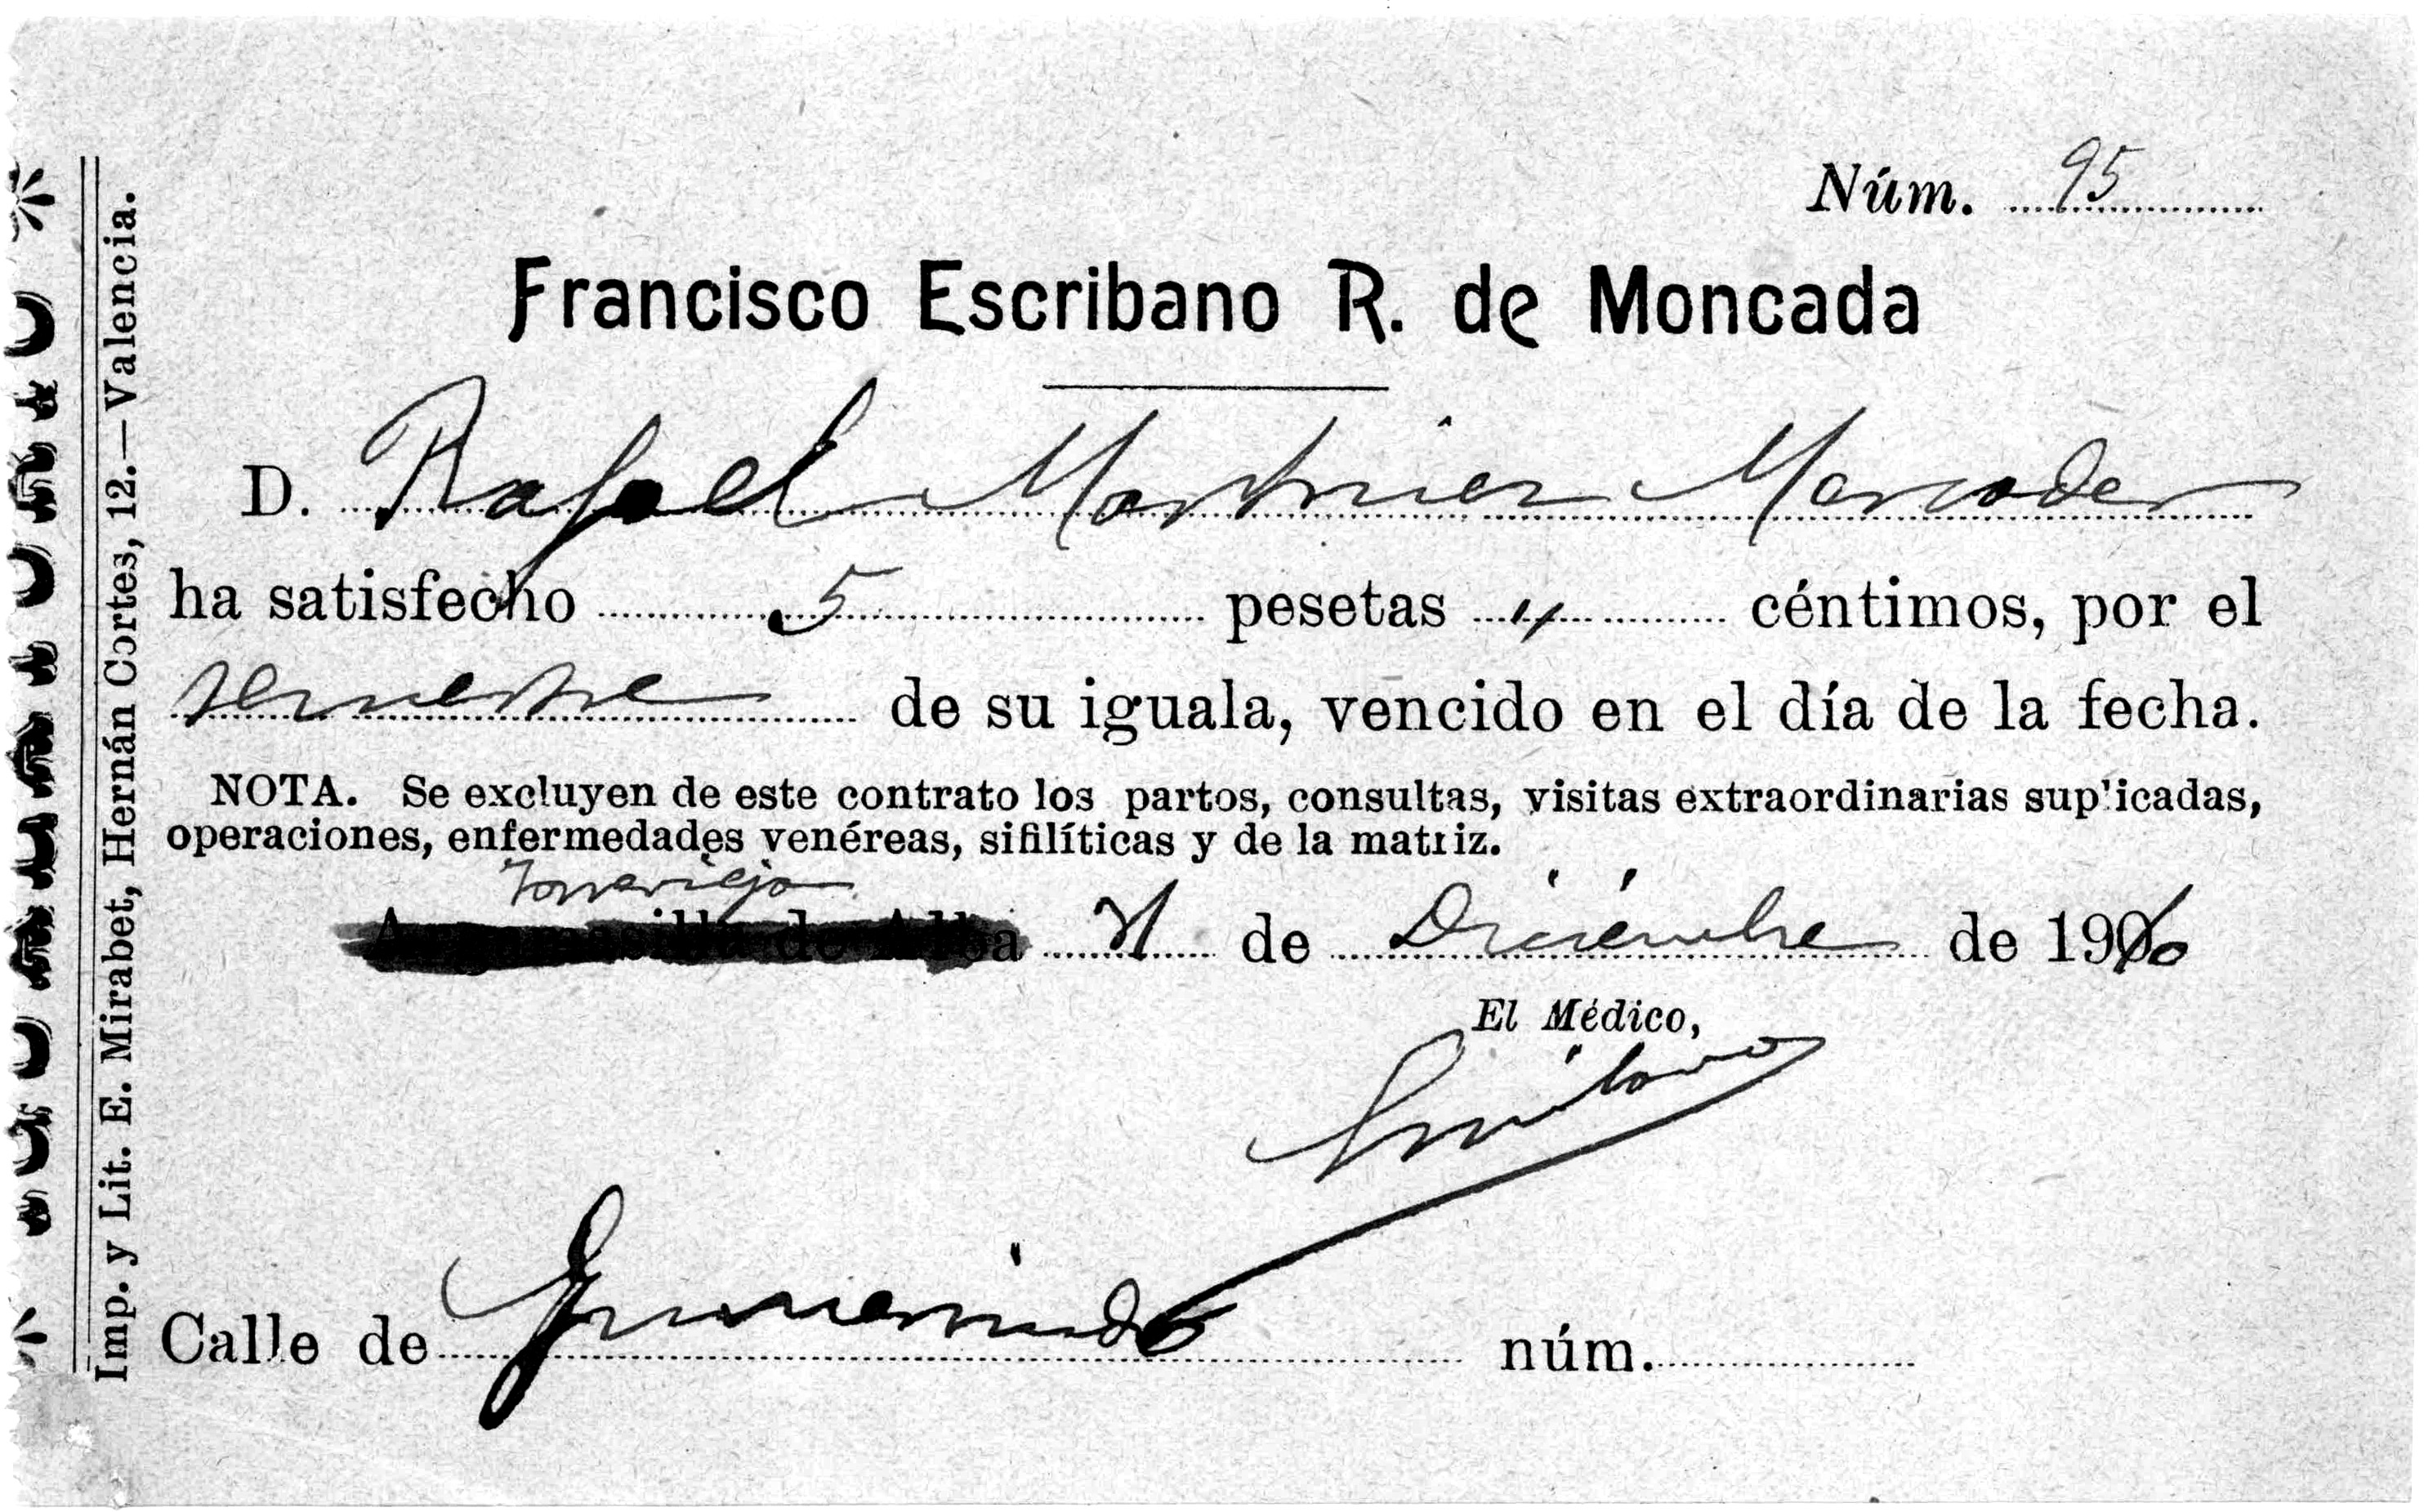 Núm. 95
Francisco Escribano R. de Moncada
D. Rafael Martinez Mercader
ha satisfecho 5 pesetas " céntimos, por el
semestre de su iguala, vencido en el día de la fecha.
NOTA. Se excluyen de este contrato los partos, consultas, visitas extraordinarias suplicadas,
operaciones, enfermedades venéreas, sifilíticas y de la matriz.
Torrevieja
31 de Diciembre de 19
El Médico,
Escribano
Calle de núm.
Imp. y Lit. E. Mirabet, Hernán Cortes, 12.—Valencia.